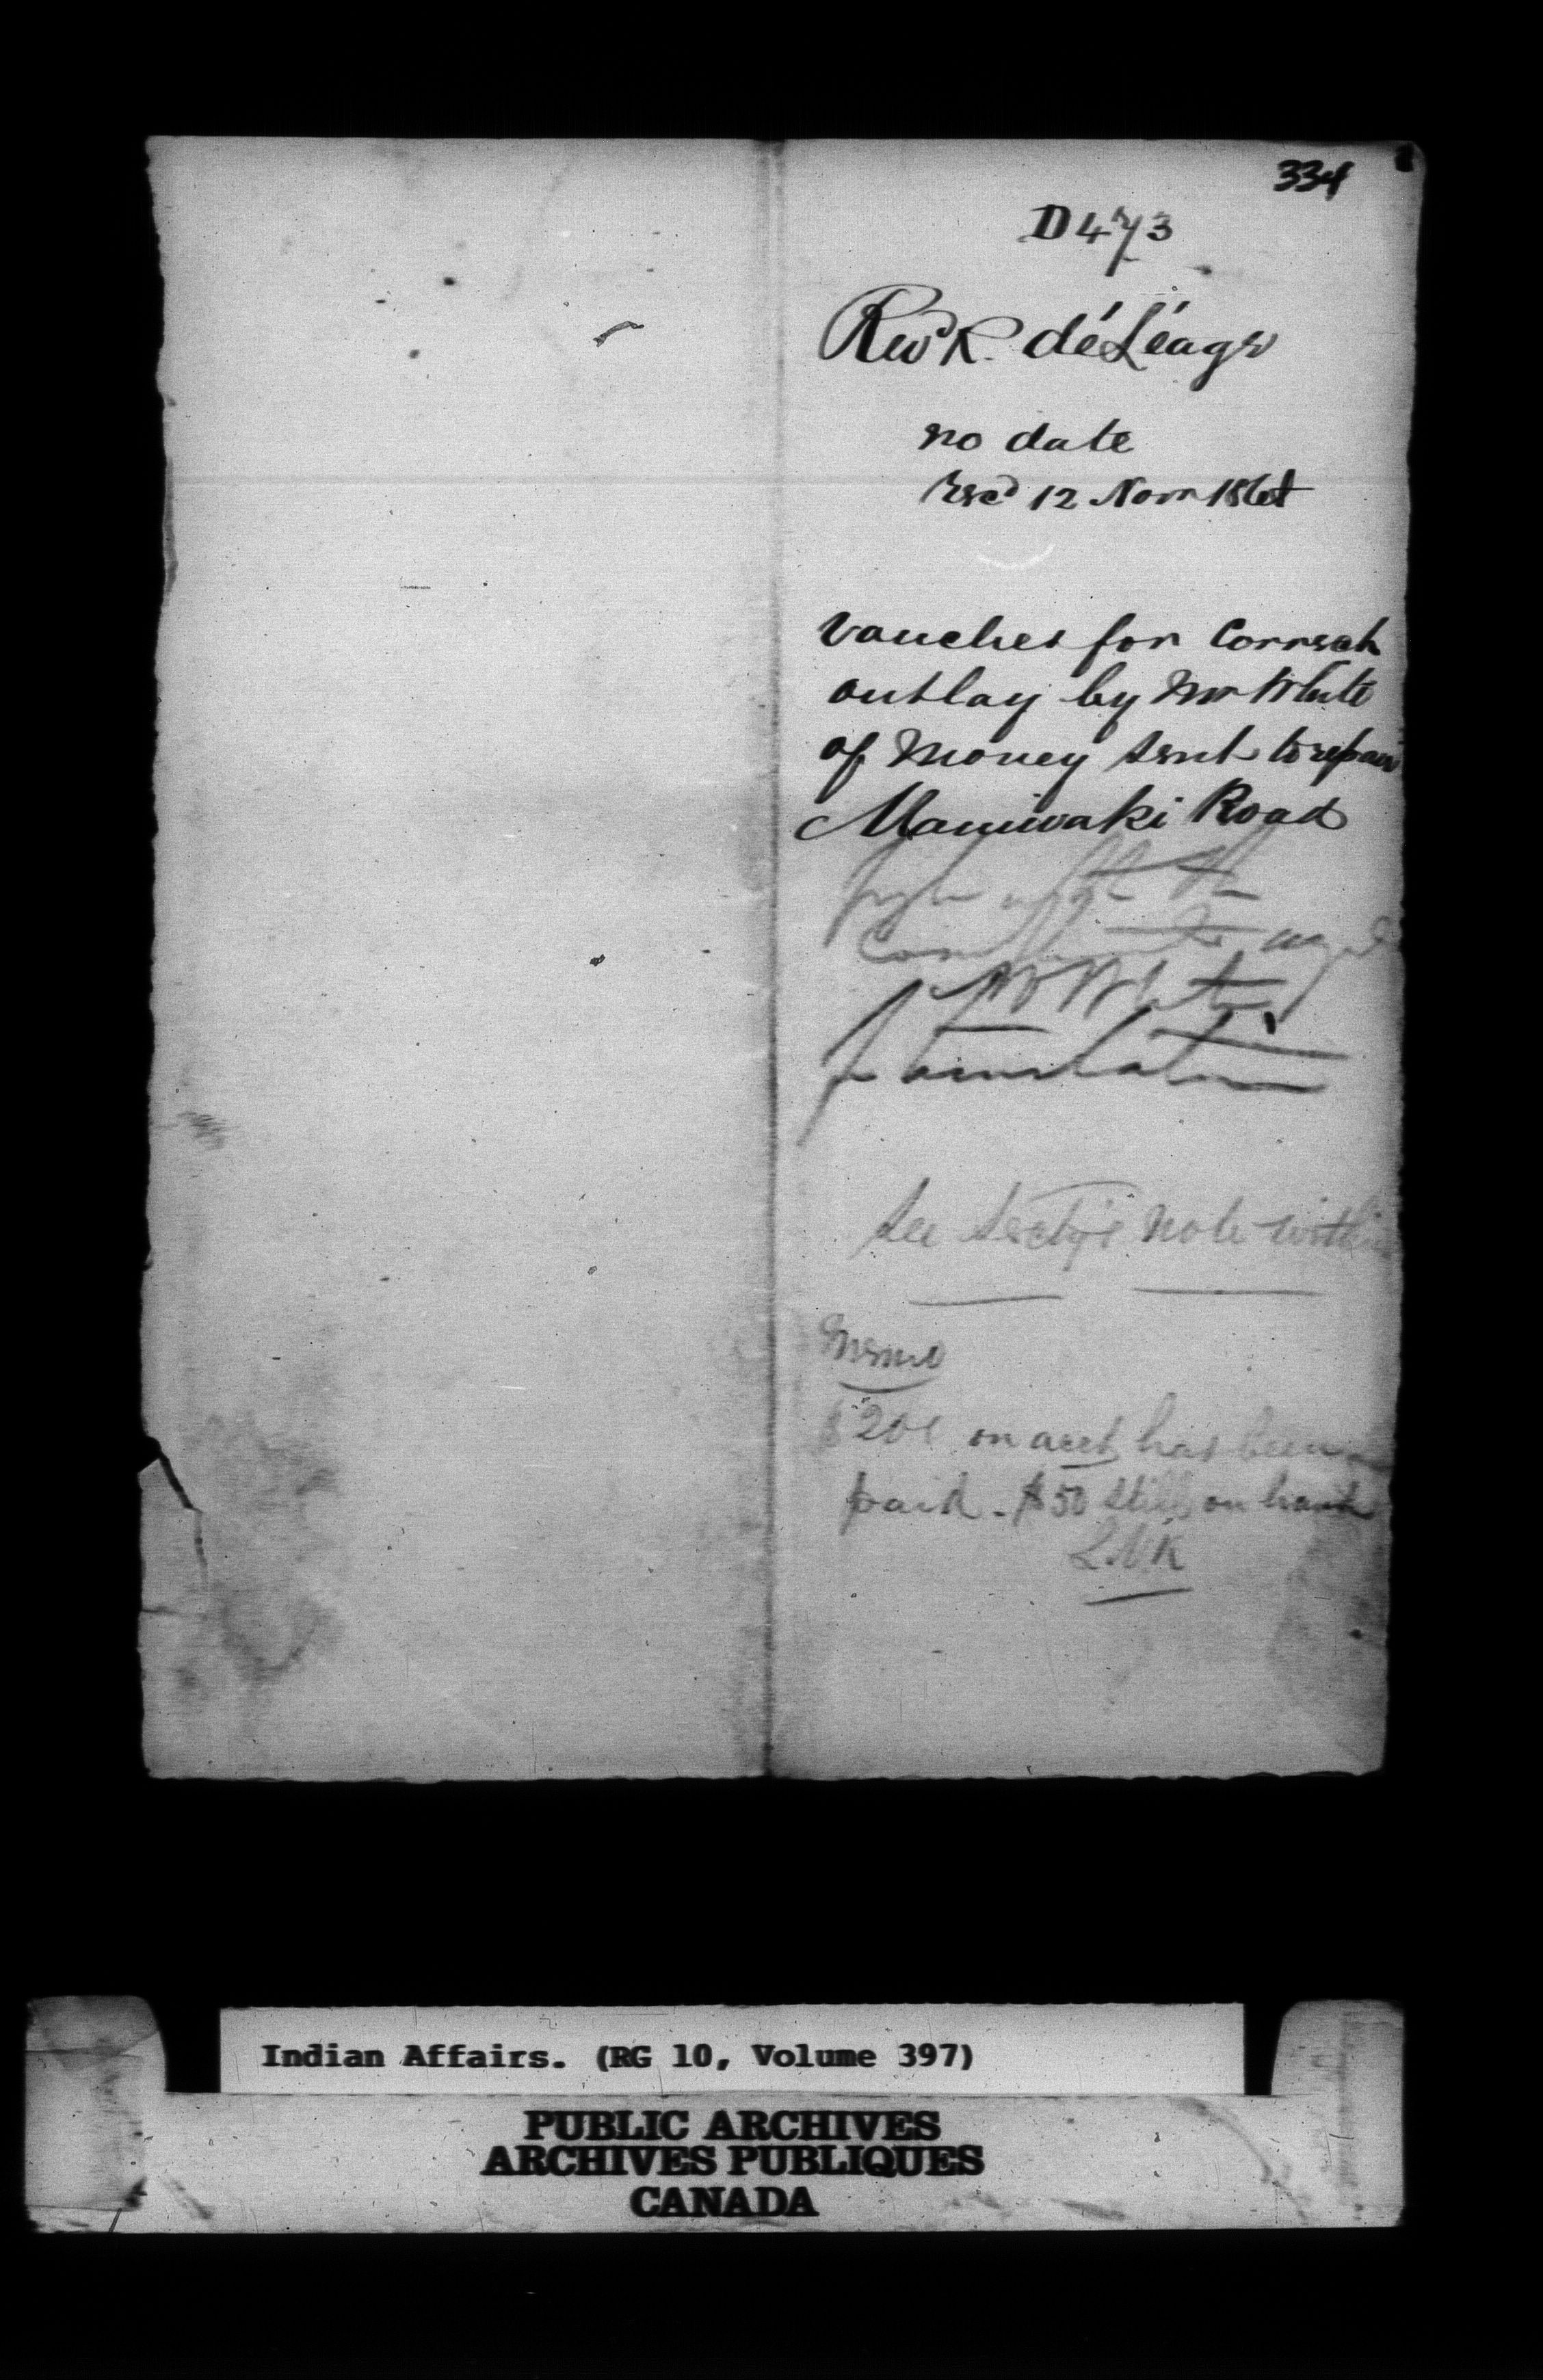 334
D473
Revd R. déLéage
no date
recd 12 Novr 1864
Vouches for Correct
outlay by Mr White
of Money sent to repair
Maniwaki Road
White
See Secty's note within
Memo
on acct has been
paid - $50 still on hand
Indian Affairs. (RG 10, Volume 397)
PUBLIC ARCHIVES
ARCHIVES PUBLIQUES
CANADA